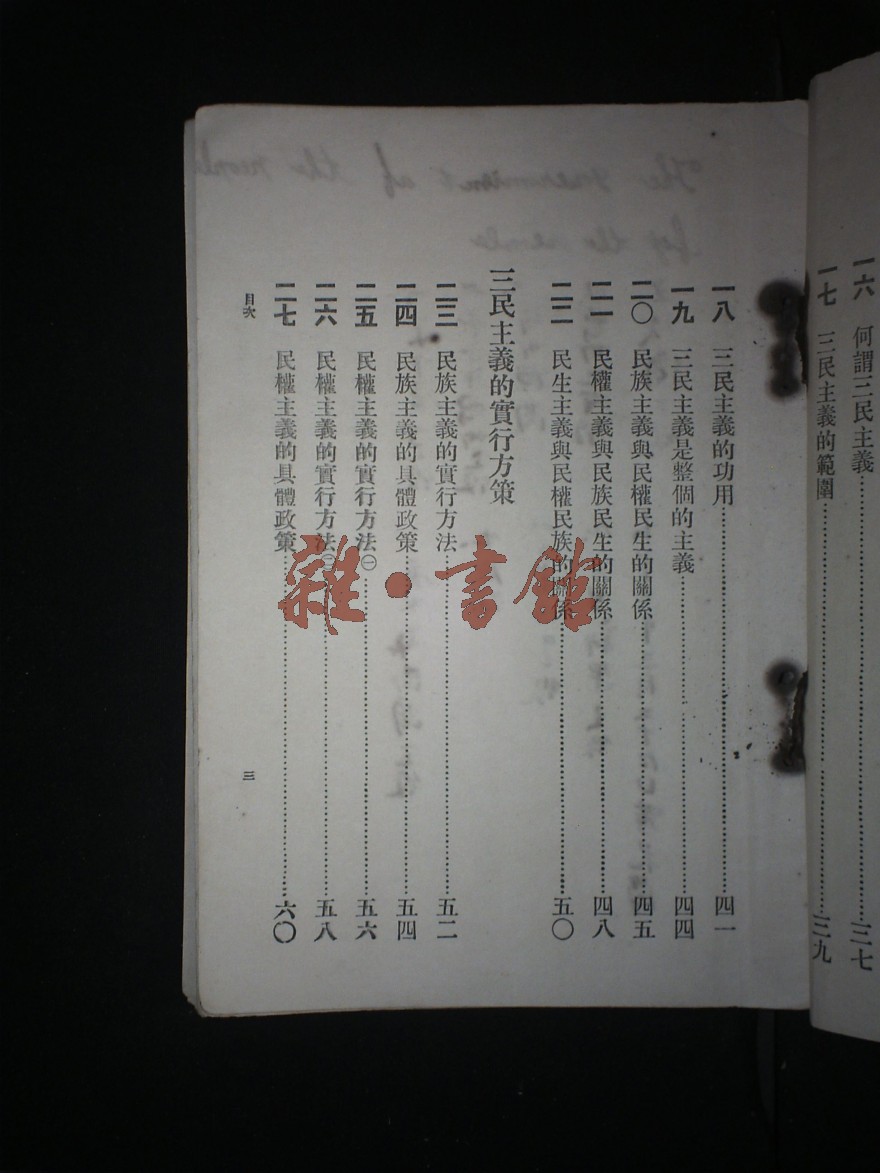 一六 何謂三民主義………三七
一七 三民主義的範圍………三九
一八 三民主義的功用………四一
一九 三民主義是整個的主義………四四
二〇 民族主義與民權民生的關係………四五
二一 民權主義與民族民生的關係………四八
二二 民生主義與民權民族的關係………五〇
三民主義的實行方策
二三 民族主義的實行方法………五二
二四 民族主義的具體政策………五四
二五 民權主義的實行方法㊀………五六
二六 民權主義的實行方法㊁………五八
二七 民權主義的具體政策………六〇
目次
三
雜·書館
The government of the people
by the